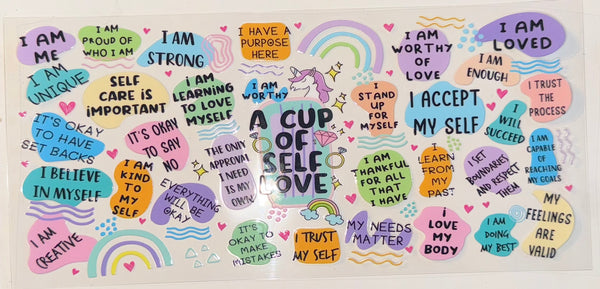 I AM
ME
I AM
PROUD OF
WHO I AM
I AM
STRONG
I HAVE A
PURPOSE
HERE
I AM
WORTHY
OF
LOVE
I AM
LOVED
I AM
UNIQUE
SELF
CARE IS
IMPORTANT
I AM
LEARNING
TO LOVE
MYSELF
I AM
WORTHY
I
STAND
UP FOR
MYSELF
I ACCEPT
MY SELF
I AM
ENOUGH
I TRUST
THE
PROCESS
I
WILL
SUCCEED
IT'S OKAY
TO HAVE
SET BACKS
IT'S OKAY
TO SAY
NO
THE ONLY
APPROVAL
I NEED
IS MY
OWN
A CUP
OF
SELF
LOVE
I AM
THANKFUL
FOR ALL
THAT
I HAVE
I
LEARN
FROM MY
PAST
I SET
BOUNDARIES
AND RESPECT
THEM
I AM
CAPABLE
OF
REACHING
MY GOALS
I BELIEVE
IN MYSELF
I AM
KIND
TO MY
SELF
EVERYTHING
WILL BE
OKAY
I AM
CREATIVE
IT'S
OKAY TO
MAKE
MISTAKES
I TRUST
MY SELF
MY NEEDS
MATTER
I
LOVE
MY
BODY
I AM
DOING
MY BEST
MY
FEELINGS
ARE
VALID